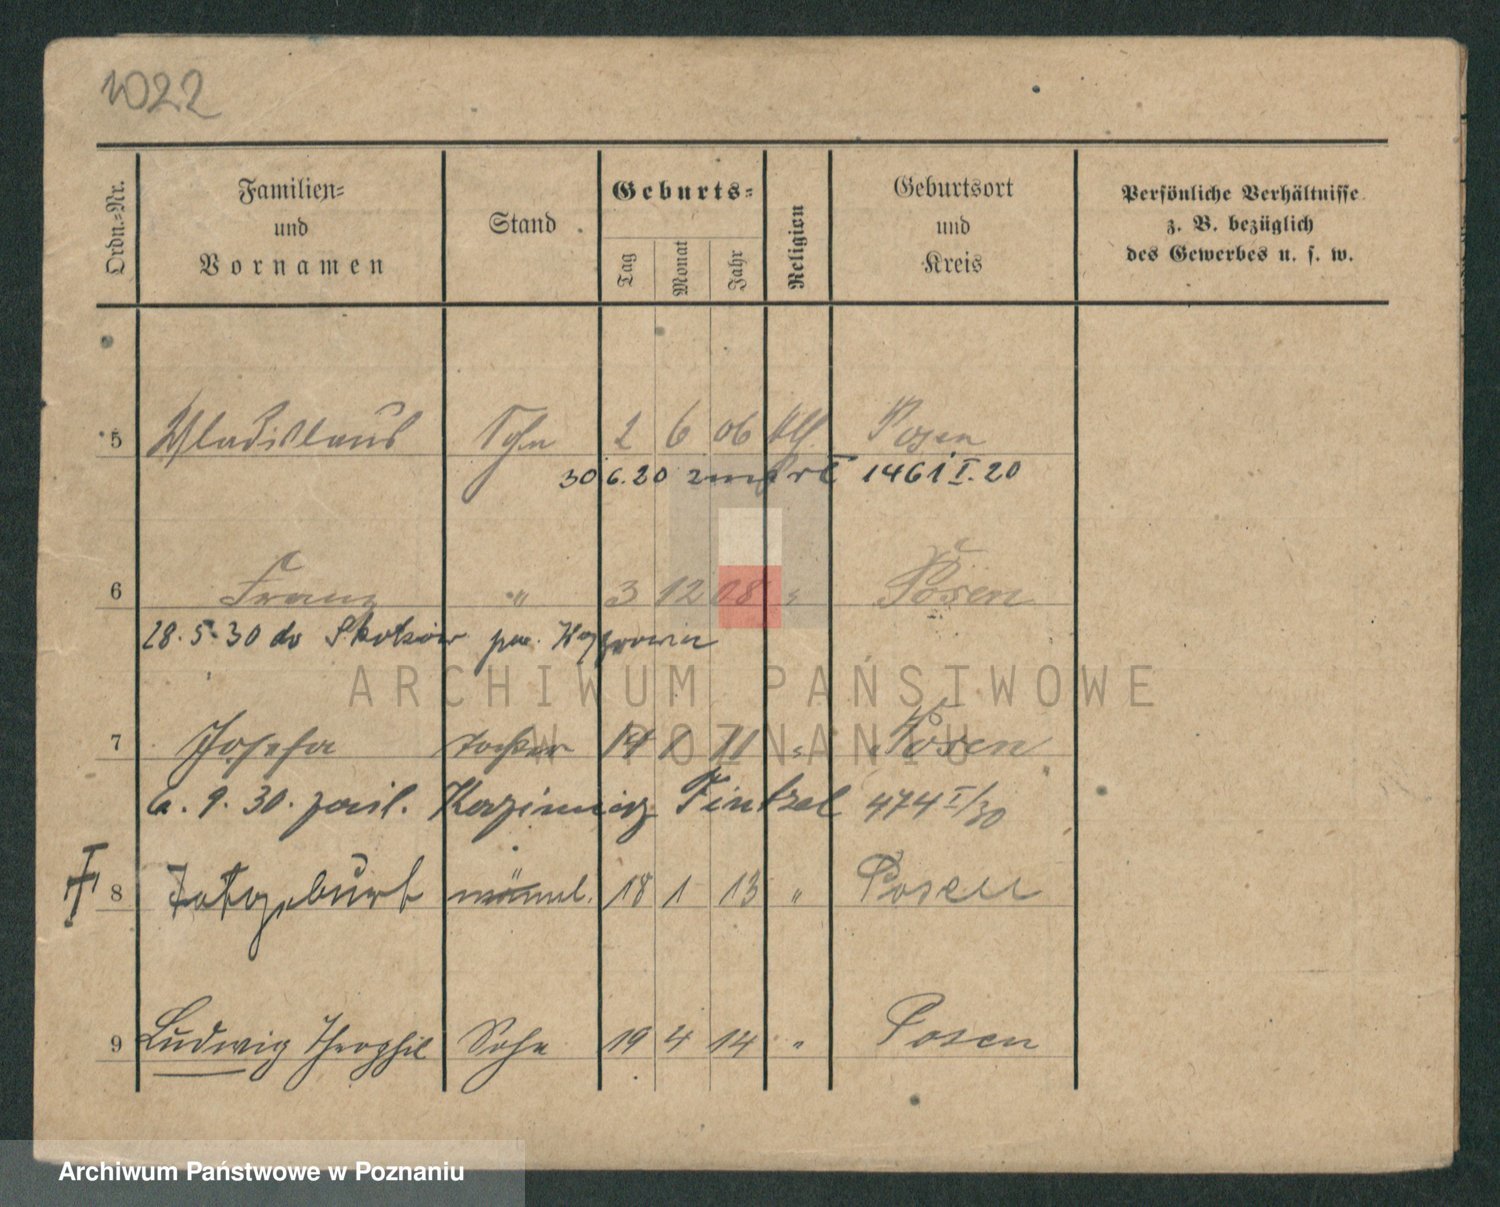 1022
Ordn.-Nr. Familien- und Vornamen Stand Geburts- Tag Monat Jahr Religion Geburtsort und Kreis Persönliche Verhältnisse z. B. bezüglich des Gewerbes u. s. w.
5 Wladislaus Sohn 2 6 06 kth. Posen
30 6. 20 zmarł 1461 I. 20
6 Franz " 3 12 08 " Posen
28. 5. 30 do Skoków
7 Josefa Tochter 14 1 11 " Posen
9. 30. Kazimierz 474 I/30
8 Totgeburt männl. 18 1 13 " Posen
9 Ludwig Theophil Sohn 19 4 14 " Posen
ARCHIWUM PAŃSTWOWE
W POZNANIU
Archiwum Państwowe w Poznaniu